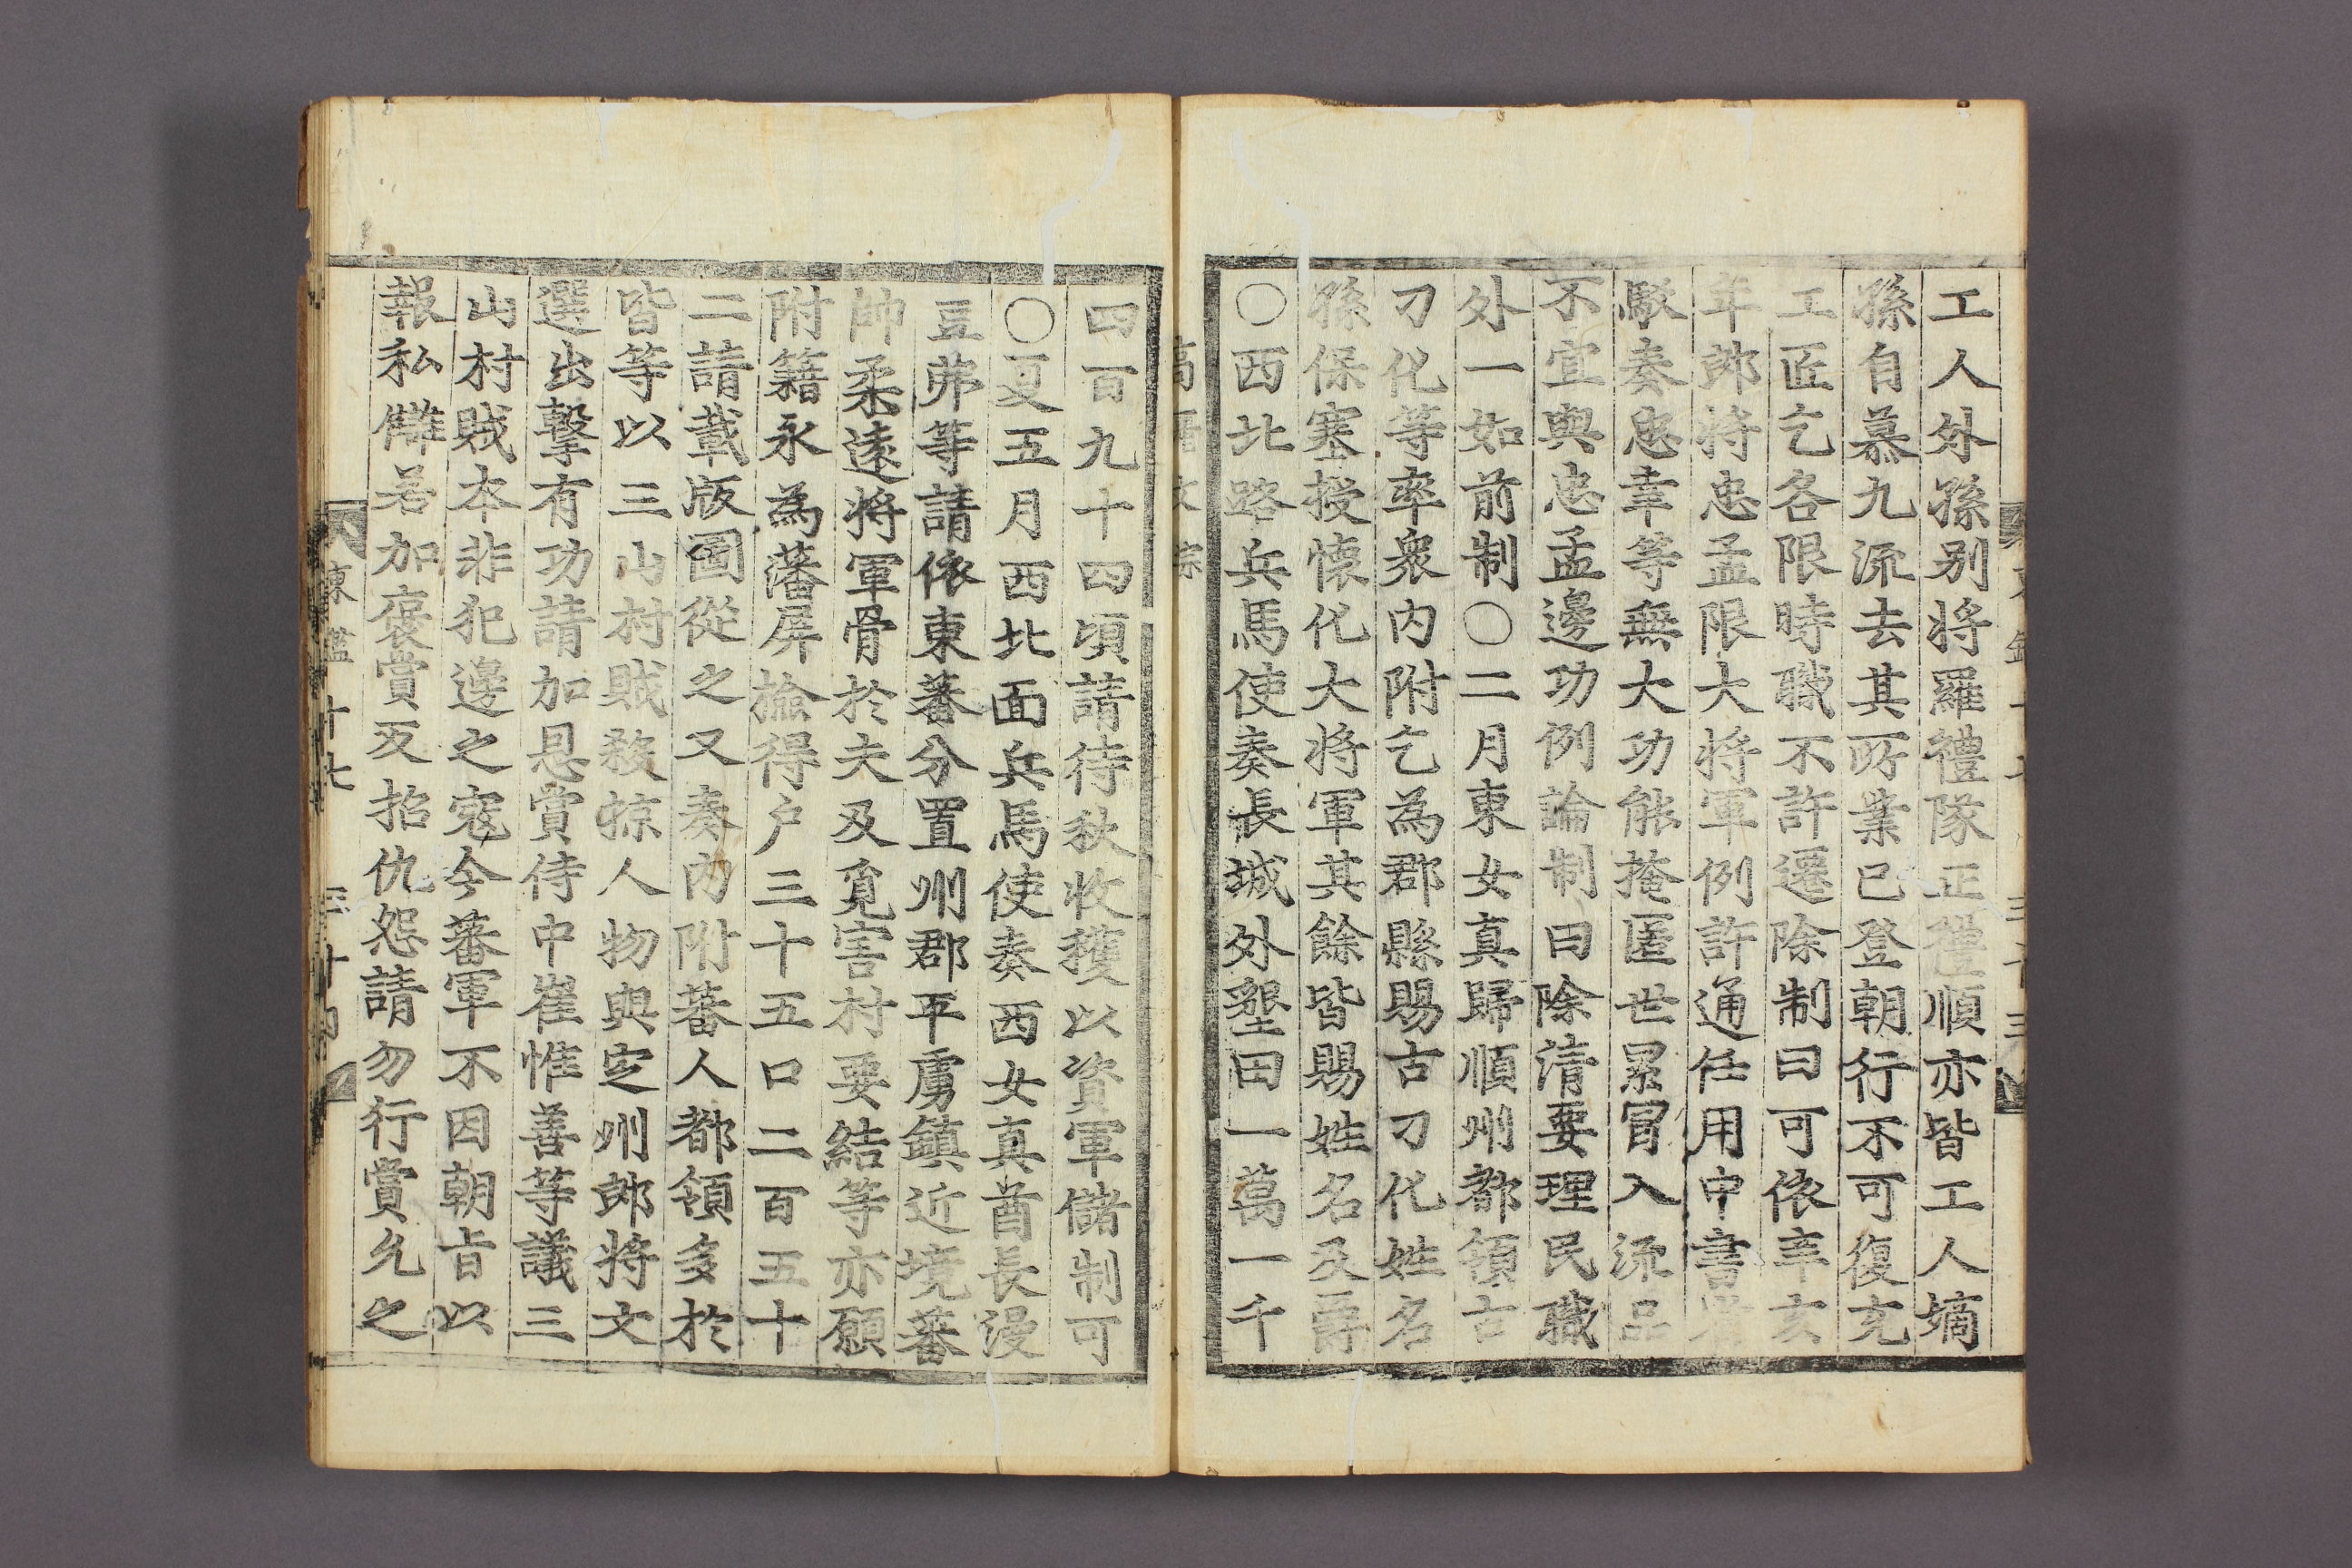 工人外孫別將羅禮隊正禮順亦皆工人嫡
孫自慕九流去其所業已登朝行不可復充
工匠乞各限時職不許遷除制曰可依辛亥
年郞將忠孟限大將軍例許通任用中書
駁奏忠幸等無大功能掩匿世累冒入流品
不宜與忠孟邊功例論制曰除淸要理民職
外一如前制〇二月東女真歸順州都領古
刁化等率衆內附乞為郡縣賜古刁化姓名
孫保塞授懷化大將軍其餘皆賜姓名及爵
〇西北路兵馬使奏長城外墾田一萬一千
高麗文宗
四百九十四頃請待秋收穫以資軍儲制可
〇夏五月西北面兵馬使奏西女真酋長漫
豆弗等請依東蕃分置州郡平虜鎮近境蕃
帥柔遠將軍骨於夫及覓害村要結等亦願
附籍永為藩屏撿得戶三十五口二百五十
二請載版圖從之又奏內附蕃人都領多於
皆等以三山村賊殺掠人物與定州郞將文
選出擊有功請加恩賞侍中崔惟善等議三
山村賊本非犯邊之寇今蕃軍不因朝旨以
報私讎若加褒賞反招仇怨請勿行賞允之
東鑑十七 三十四